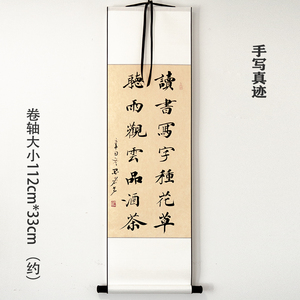 手写真迹
讀書寫字種花草
聽雨觀雲品酒茶
卷轴大小112cm*33cm（约）